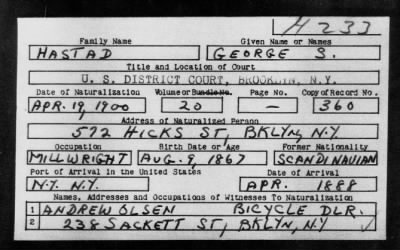 H 233
Family Name Given Name or Names
HASTAD GEORGE S.
Title and Location of Court
U. S. DISTRICT COURT, BROOKLYN, N.Y.
Date of Naturalization Volume or Bundle No. Page No. Copy of Record No.
APR. 19, 1900 20 — 360
Address of Naturalized Person
572 HICKS ST, BKLYN, N.Y.
Occupation Birth Date or Age Former Nationality
MILLWRIGHT AUG. 9, 1867 SCANDINAVIAN
Port of Arrival in the United States Date of Arrival
N.Y. N.Y. APR. 1888
Names, Addresses and Occupations of Witnesses To Naturalization
1 ANDREW OLSEN BICYCLE DLR.
2 238 SACKETT ST, BKLYN, N.Y